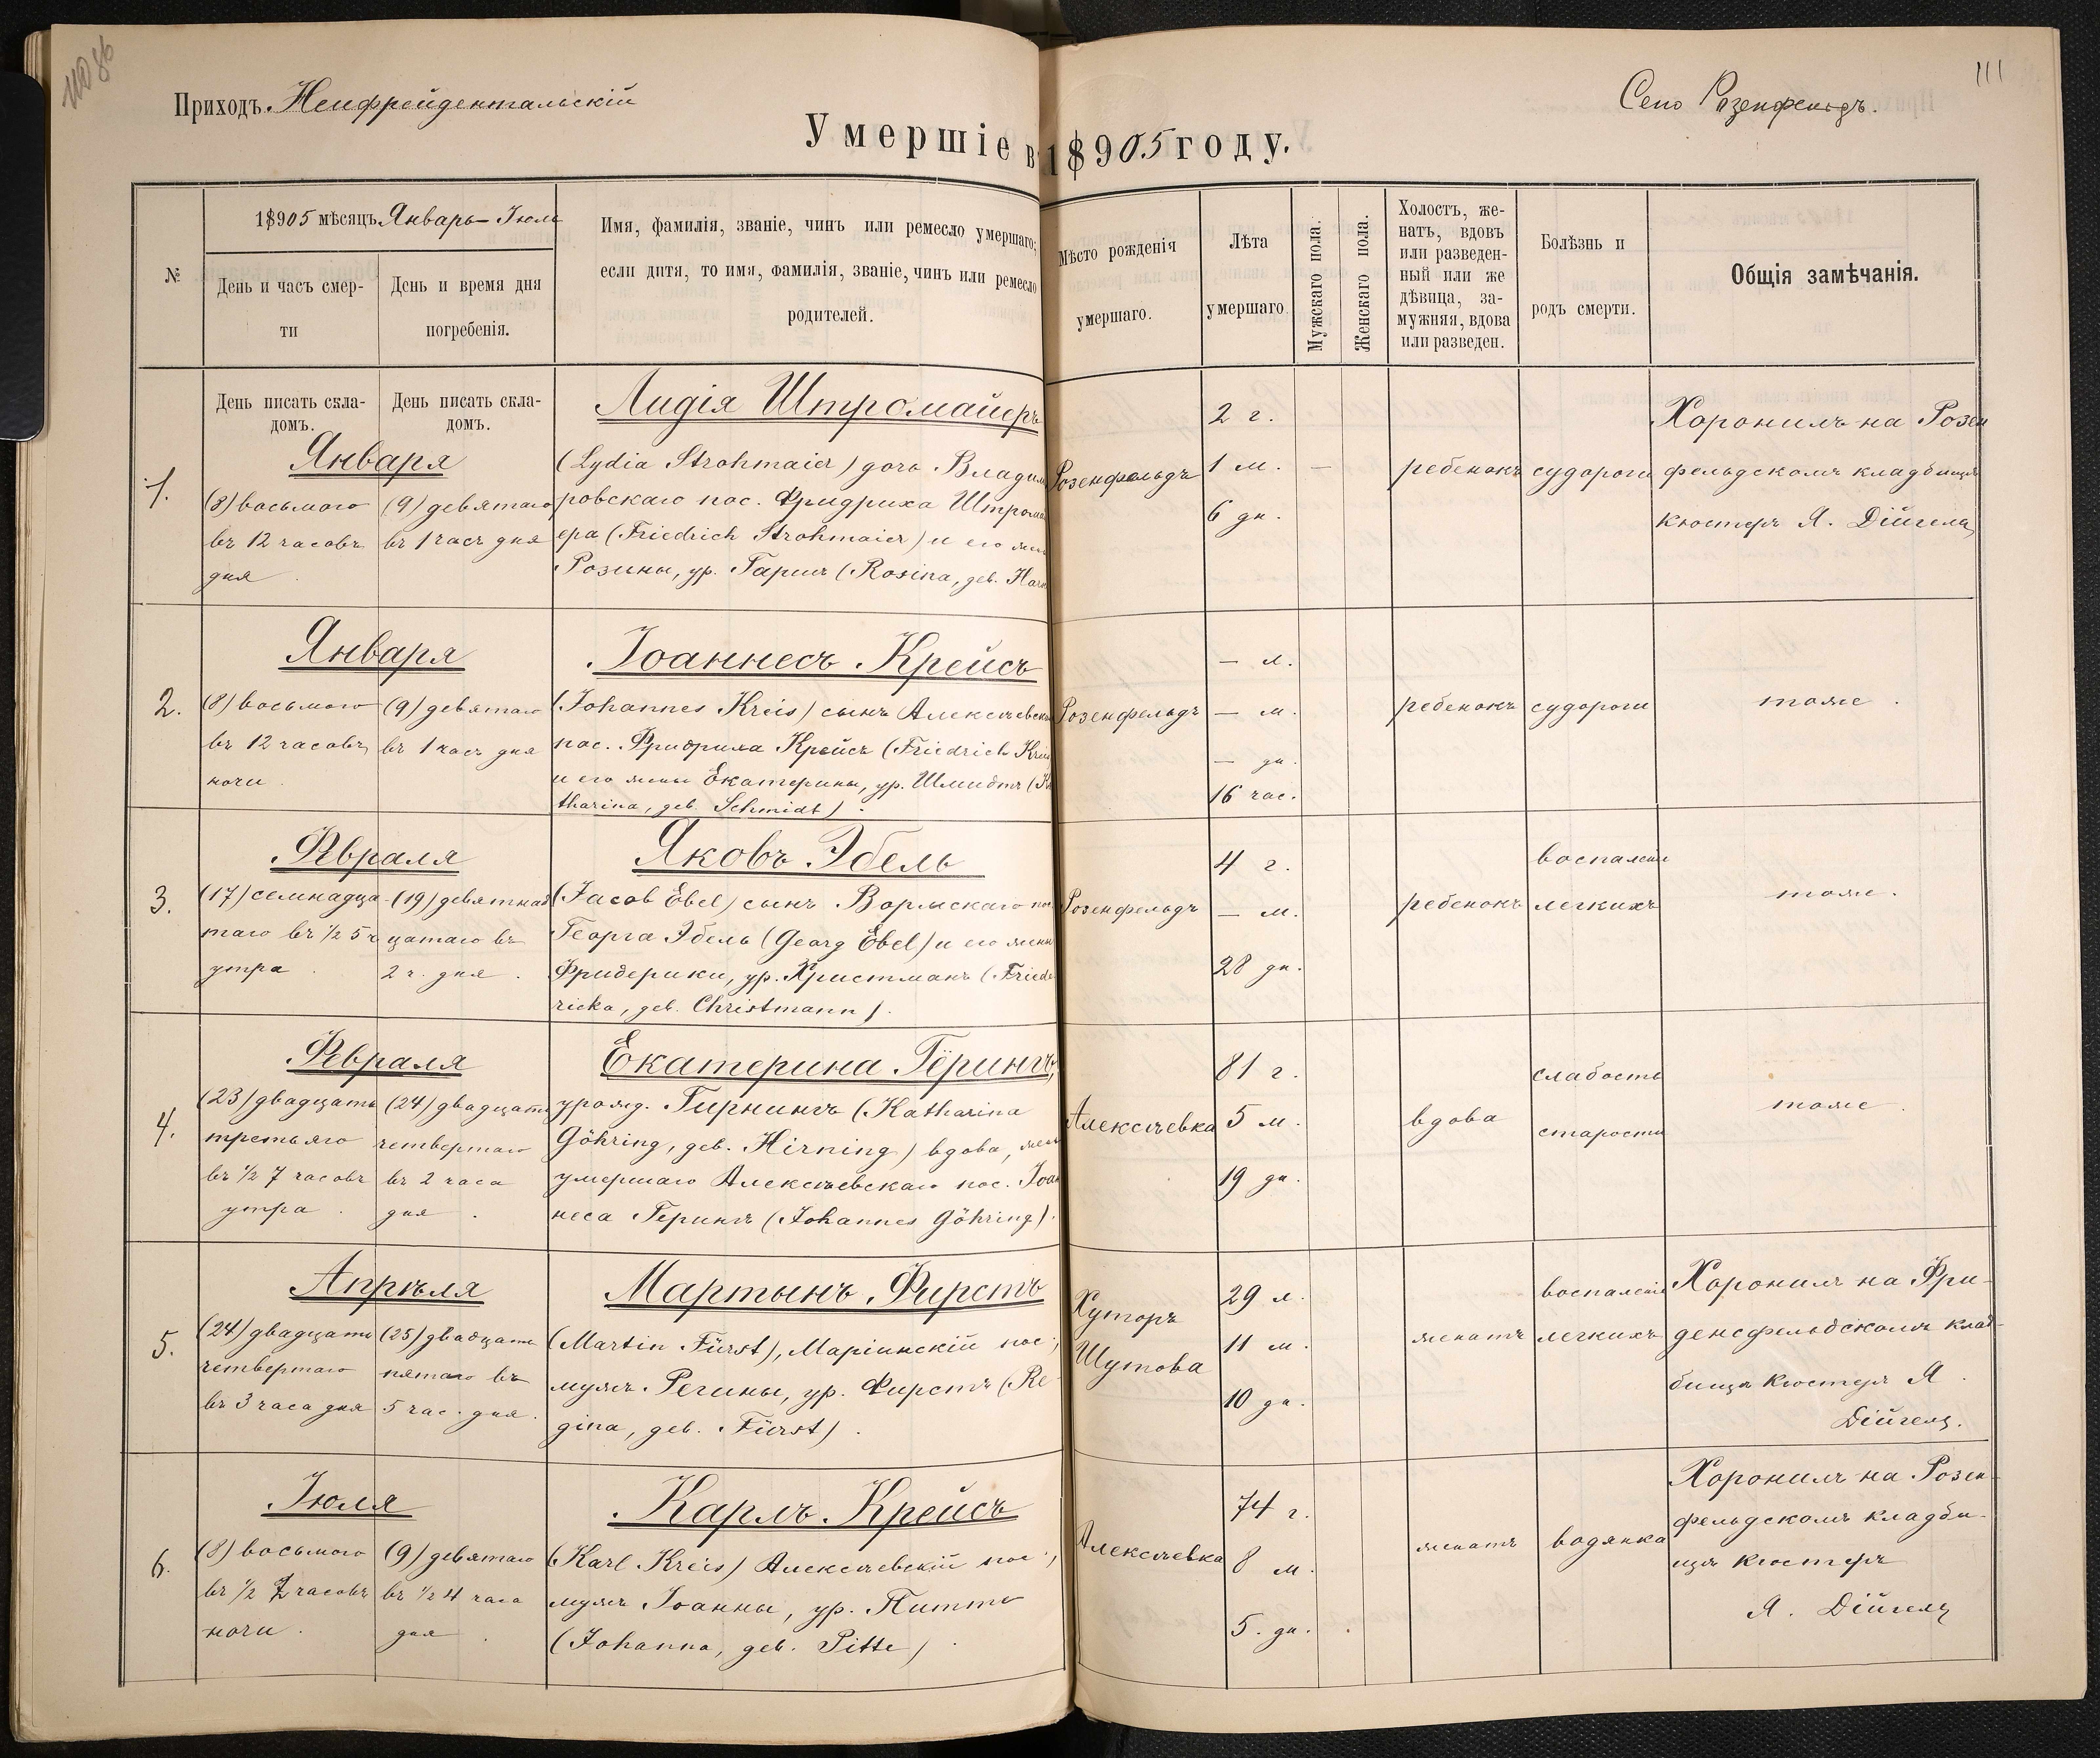 Приходъ Нейфрейдентальскій
Село Розенфельдъ.
111
Умершіе въ 18905 году.
№
18905 мѣсяцъ Январь – Іюль
День и часъ смер-
ти
День и время дня
погребенія.
Имя, фамилія, званіе, чинъ или ремесло умершаго;
если дитя, то имя, фамилія, званіе, чинъ или ремесло
родителей.
Мѣсто рожденія
умершаго.
Лѣта
умершаго.
Мужескаго пола.
Женскаго пола.
Холостъ, же-
натъ, вдовъ
или разведен-
ный или же
дѣвица, за-
мужняя, вдова
или разведен.
Болѣзнь и
родъ смерти.
Общія замѣчанія.
День писать скла-
домъ.
День писать скла-
домъ.
1.
Января
(8) восьмого
въ 12 часовъ
дня
(9) девятаго
въ 1 часъ дня
Лидія Штромайеръ
(Lydia Strohmaier) дочь Владими
ровскаго пос. Фридриха Штромай
ера (Friedrich Strohmaier) и его жены
Розины, ур. Гарин (Rosina, geb. Harn
Розенфельдъ
2 г.
1 м.
6 дн.
–
ребенокъ
судороги
Хоронилъ на Розен
фельдскомъ кладбищѣ
кюстеръ Я. Дійгелъ
2.
Января
(8) восьмого
въ 12 часовъ
ночи.
(9) девятаго
въ 1 часъ дня
Іоаннесъ Крейсъ
(Johannes Kreis) сынъ Алексѣевска
пос. Фридриха Крейсъ (Friedrich Kreis
и его жены Екатерины, ур. Шмидтъ (Ka
tharina, geb. Schmidt).
Розенфельдъ
– л.
– м.
– дн.
16 час.
ребенокъ
судороги
тоже.
3.
Февраля
(17) семнадца-
таго въ ½ 5 ч
утра.
(19) девятнад
цатаго въ
2 ч. дня.
Яковъ Эбель
(Jacob Ebel) сынъ Вормскаго пос.
Георга Эбель (Georg Ebel) и его жены
Фридерики, ур. Христманъ (Friede
ricka, geb. Christmann).
Розенфельдъ
4 г.
– м.
28 дн.
ребенокъ
воспаленіе
легкихъ
тоже.
4.
Февраля
(23) двадцать
третьяго
въ ½ 7 часовъ
утра.
(24) двадцать
четвертаго
въ 2 часа
дня.
Екатерина Гёрингъ,
урожд. Гирнингъ (Katharina
Göhring, geb. Hirning) вдова, жена
умершаго Алексѣевскаго пос. Іоан
неса Герингъ (Johannes Göhring).
Алексѣевка
81 г.
5 м.
19 дн.
вдова
слабость
старости
тоже.
5.
Апрѣля
(24) двадцать
четвертаго
въ 3 часа дня
(25) двадцать
пятаго въ
5 час. дня.
Мартынъ Фирстъ
(Martin Fürst), Маріинскій пос.,
мужъ Регины, ур. Фирстъ (Re-
gina, geb. Fürst).
Хуторъ
Шутова
29 л.
11 м.
10 дн.
женатъ
воспаленіе
легкихъ
Хоронилъ на Фри-
денсфельдскомъ клад-
бищѣ кюстеръ Я.
Дійгелъ.
6.
Іюля
(8) восьмого
въ ½ 2 часовъ
ночи.
(9) девятаго
въ ½ 4 часа
дня.
Карлъ Крейсъ
(Karl Kreis) Алексѣевскій пос.,
мужъ Іоанны, ур. Питте
(Johanna, geb. Pitte).
Алексѣевка
74 г.
8 м.
5. дн.
женатъ
водянка
Хоронилъ на Розен-
фельдскомъ кладби-
щѣ кюстеръ
Я. Дійгелъ